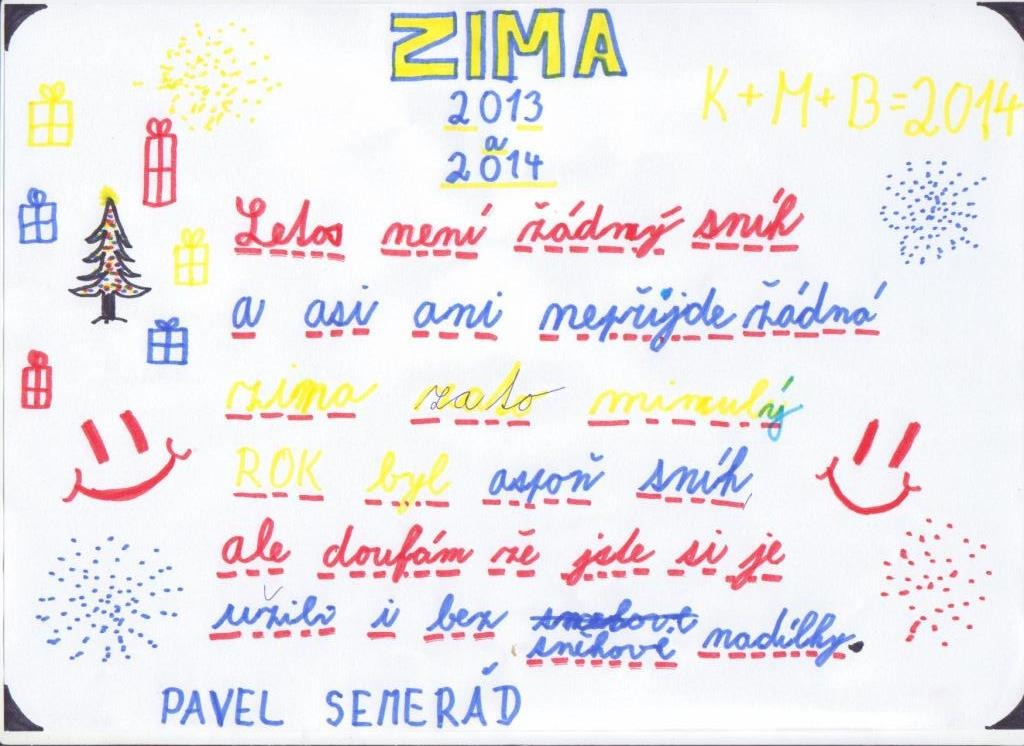 ZIMA
2013
a
2014
K+M+B=2014
Letos není žádný sníh
a asi ani nepřijde žádná
zima zato minulý
ROK byl aspoň sníh
ale doufám že jste si je
užili i bez
sněhové nadílky.
PAVEL SEMERÁD